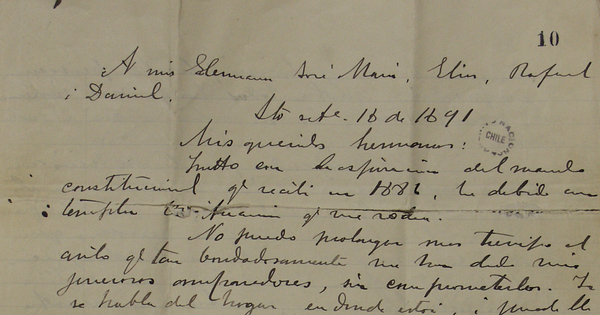 10
A mis Hermanos José María, Elías, Rafael
i Daniel.
Stgo sete. 18 de 1891
CHILE
Mis queridos hermanos:
Junto con la espiración del mando
constitucional qe recibí en 1886, he debido con-
templar la situación qe me rodea.
No puedo prolongar mas tiempo el
asilo qe tan bondadosamente me han dado mis
jenerosos amparadores, sin comprometerlos. Ya
se habla del hogar en donde estoi, i puede ll